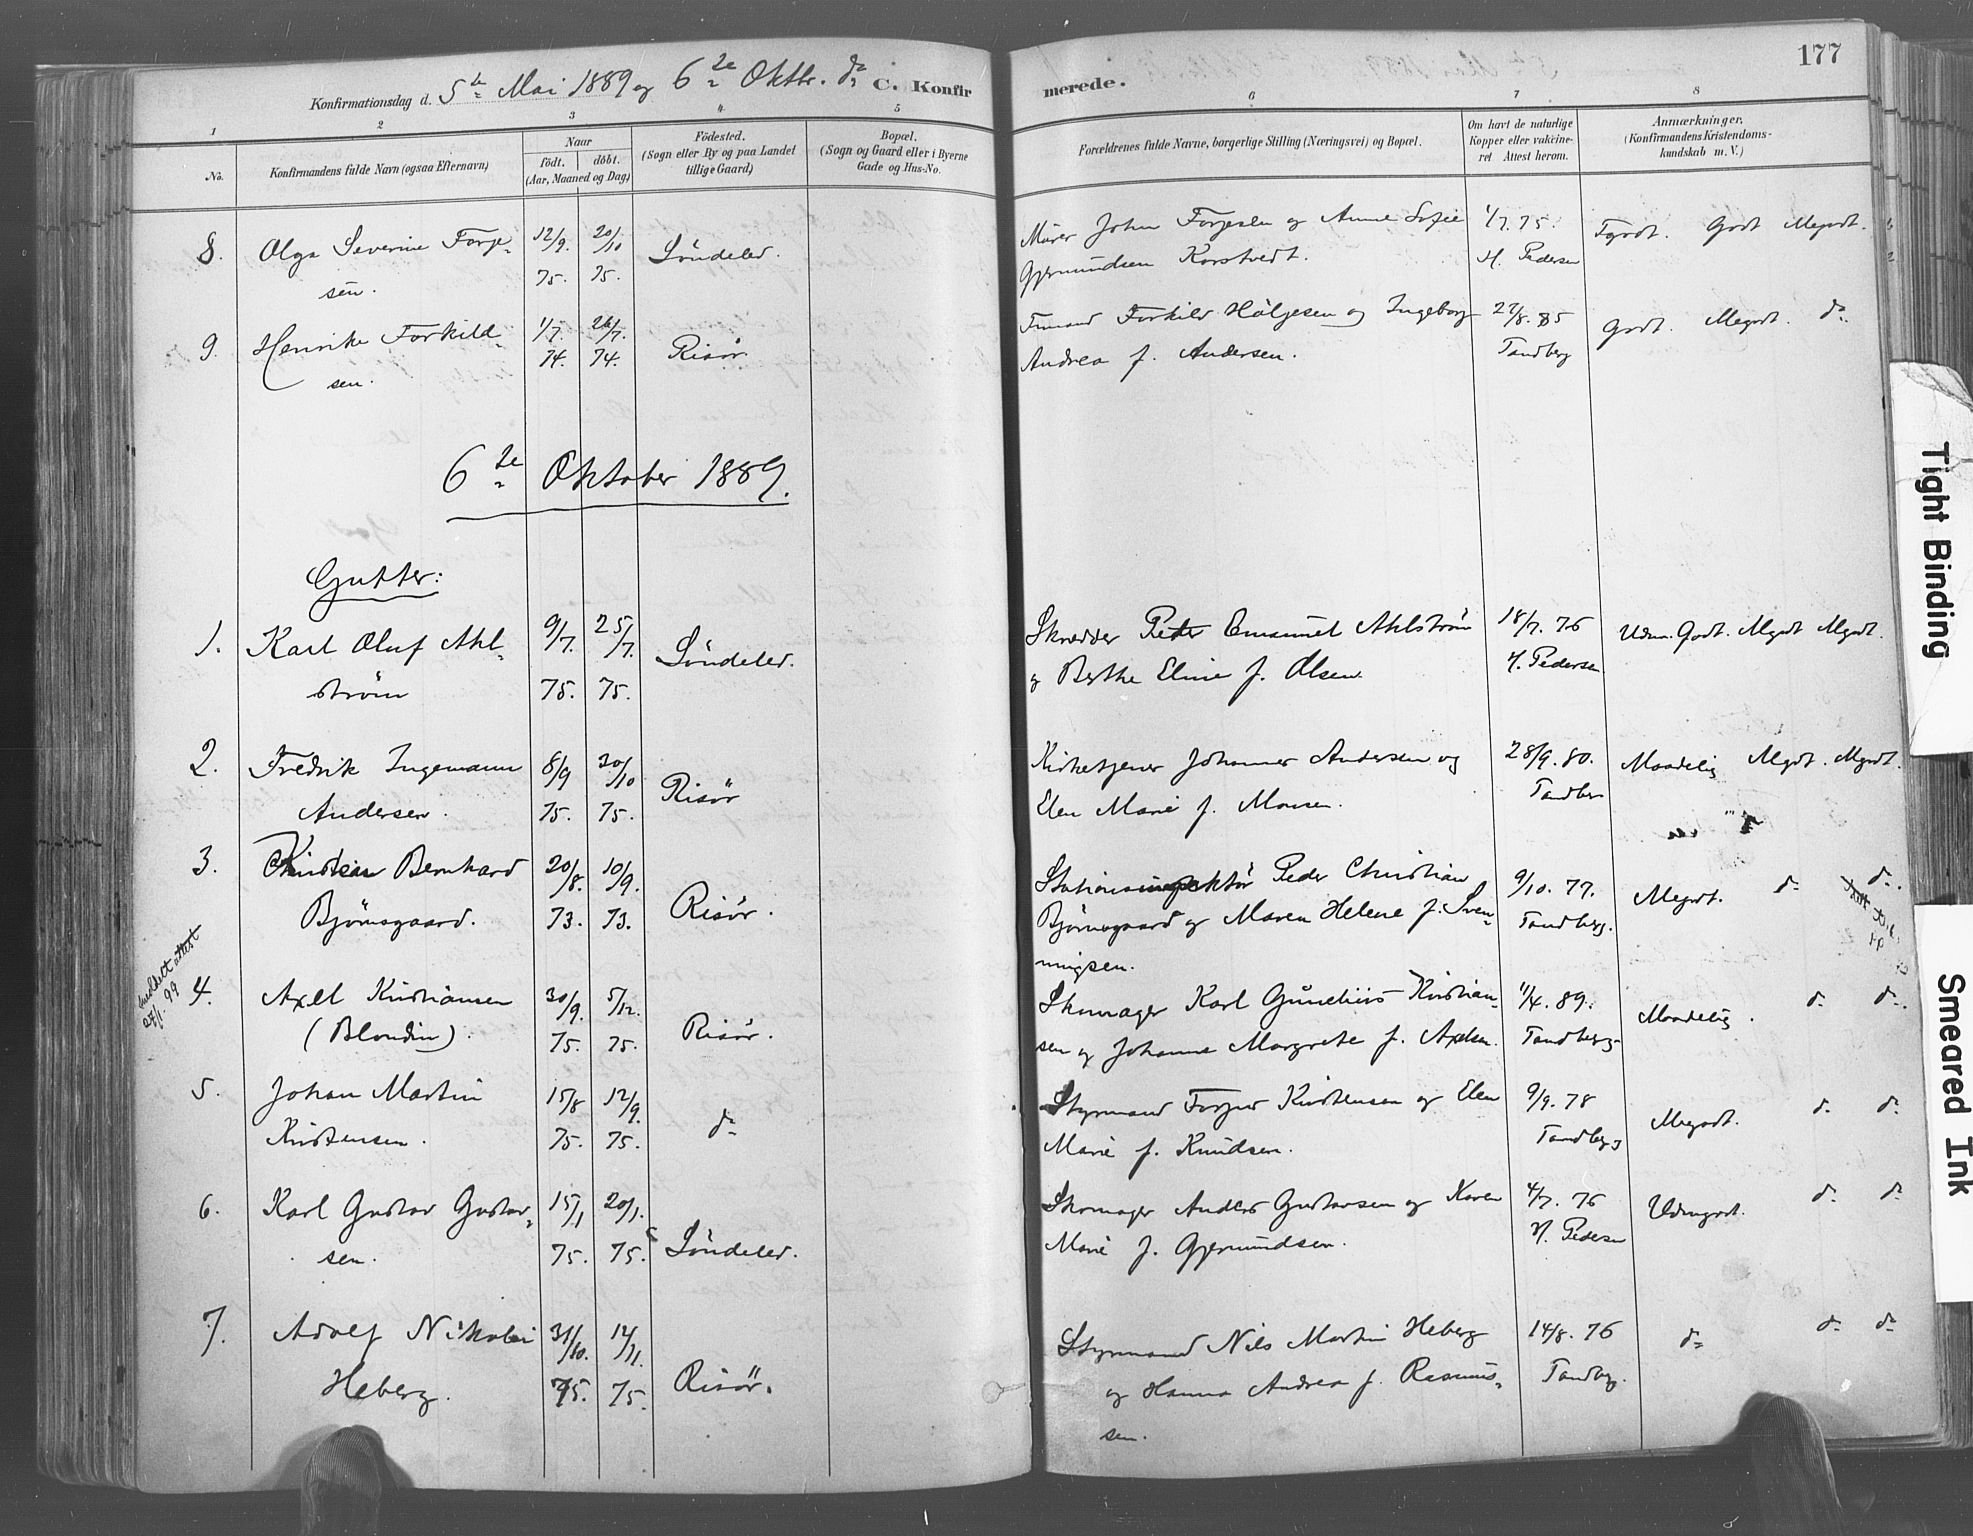 177
Konfirmationsdag d. 5te Mai 1889 og 6te Oktbr. do C. Konfirmerede.
1 2 3 4 5 6 7 8
No.
Konfirmandens fulde Navn (ogsaa Efternavn)
Naar
födt. döbt.
(Aar, Maaned og Dag)
Födested.
(Sogn eller By og paa Landet
tillige Gaard)
Bopæl.
(Sogn og Gaard eller i Byerne
Gade og Hus-No.
Forældrenes fulde Navne, borgerlige Stilling (Næringsvei) og Bopæl.
Om havt de naturlige
Kopper eller vakcine-
ret Attest herom.
Anmærkninger.
(Konfirmandens Kristendoms-
kundskab m. V.)
8. Olga Severine Torje- 12/9. 20/10 Söndeled. Murer John Torjesen og Anne Sofie 1/7. 75. Tgodt. Godt Megodt.
sen. 75. 75. Gjermundsen Korstvedt. H. Pedersen
9. Henrike Torkild- 1/7. 26/7. Risör Tömmd Torkild Höljesen og Ingeborg 27/8. 85 Godt. Megodt. do
sen. 74. 74. Andrea f. Andersen. Tandberg
6te Oktober 1889.
Gutter:
1. Karl Oluf Ahl- 9/7. 25/7. Söndeled. Skrædder Peder Emanuel Ahlström 18/7. 76 Udm. Godt. Mgodt Mgodt.
ström 75. 75. og Berthe Eline f. Olsen H. Pedersen
2. Fredrik Ingemann 8/9 30/10 Risör Kirketjener Johannes Andersen og 28/9. 80. Maadelig Mgodt. Mgodt.
Andersen. 75. 75. Elen Marie f. Monsen. Tandberg
3. Kristian Bernhard 20/8. 10/9. Risör. Stationsinspektör Peder Christian 9/10. 77. Megodt. do do.
Björnsgaard. 73. 73. Björnsgaard og Maren Helene f. Sven- Tandberg.
ningsen.
meldett attest
27/1. 99
4. Axel Kristiansen 30/9. 5/12. Risör. Skomager Karl Gunelius Kristian- 11/4. 89. Maadelig. do do.
(Blondin). 75. 75. sen og Johanne Margrete f. Axelsen. Tandberg
5. Johan Martin 15/8 12/9. do Styrmand Torjus Kristensen og Elen 9/9. 78 Megodt. do do
Kristensen. 75. 75. Marie f. Knudsen. Tandberg
6. Karl Gustav Gustav- 15/1 20/1. Söndeled. Skomager Anders Gustavsen og Karen 4/7. 76 Udmgodt. do do
sen. 75. 75. Marie f. Gjermundsen. H. Pedersen
7. Adolf Nikolai 31/10. 14/11. Risör. Styrmand Nils Martin Heberg 14/8. 76 do do do
Heberg. 75. 75. og Hanna Andrea f. Rasmus- Tandberg.
sen.
Tight Binding
Smeared Ink